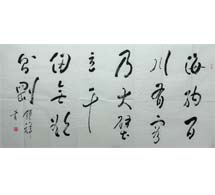 海納百
川有容
乃大壁
立千
仞無欲
則剛